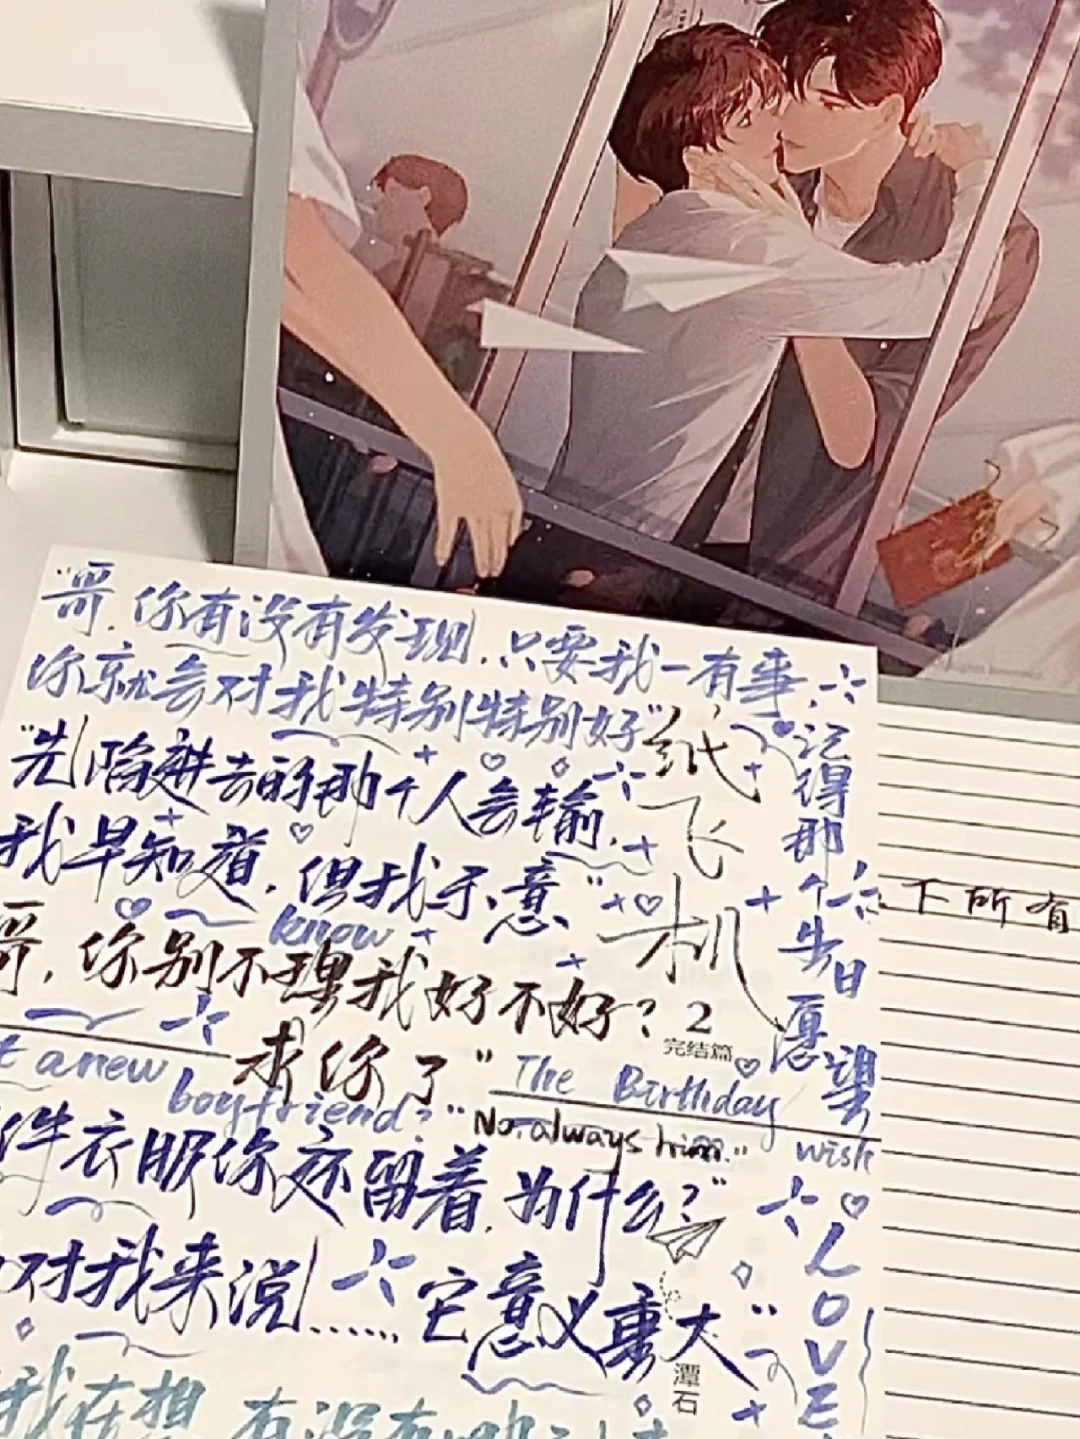 "哥,你有没有发现,只要我一有事,
你就会对我特别特别好"
"先陷进去的那个人会输,
我早知道,但我乐意"
know
哥,你别不理我好不好?
求你了"
a new
boyfriend?"
"No, always him."
件衣服你还留着,为什么?"
对我来说……它意义重大"
我在想
有没有
纸飞机
2
完结篇
The Birthday
wish
记得那个生日愿望
LOVE
潭石
下所有